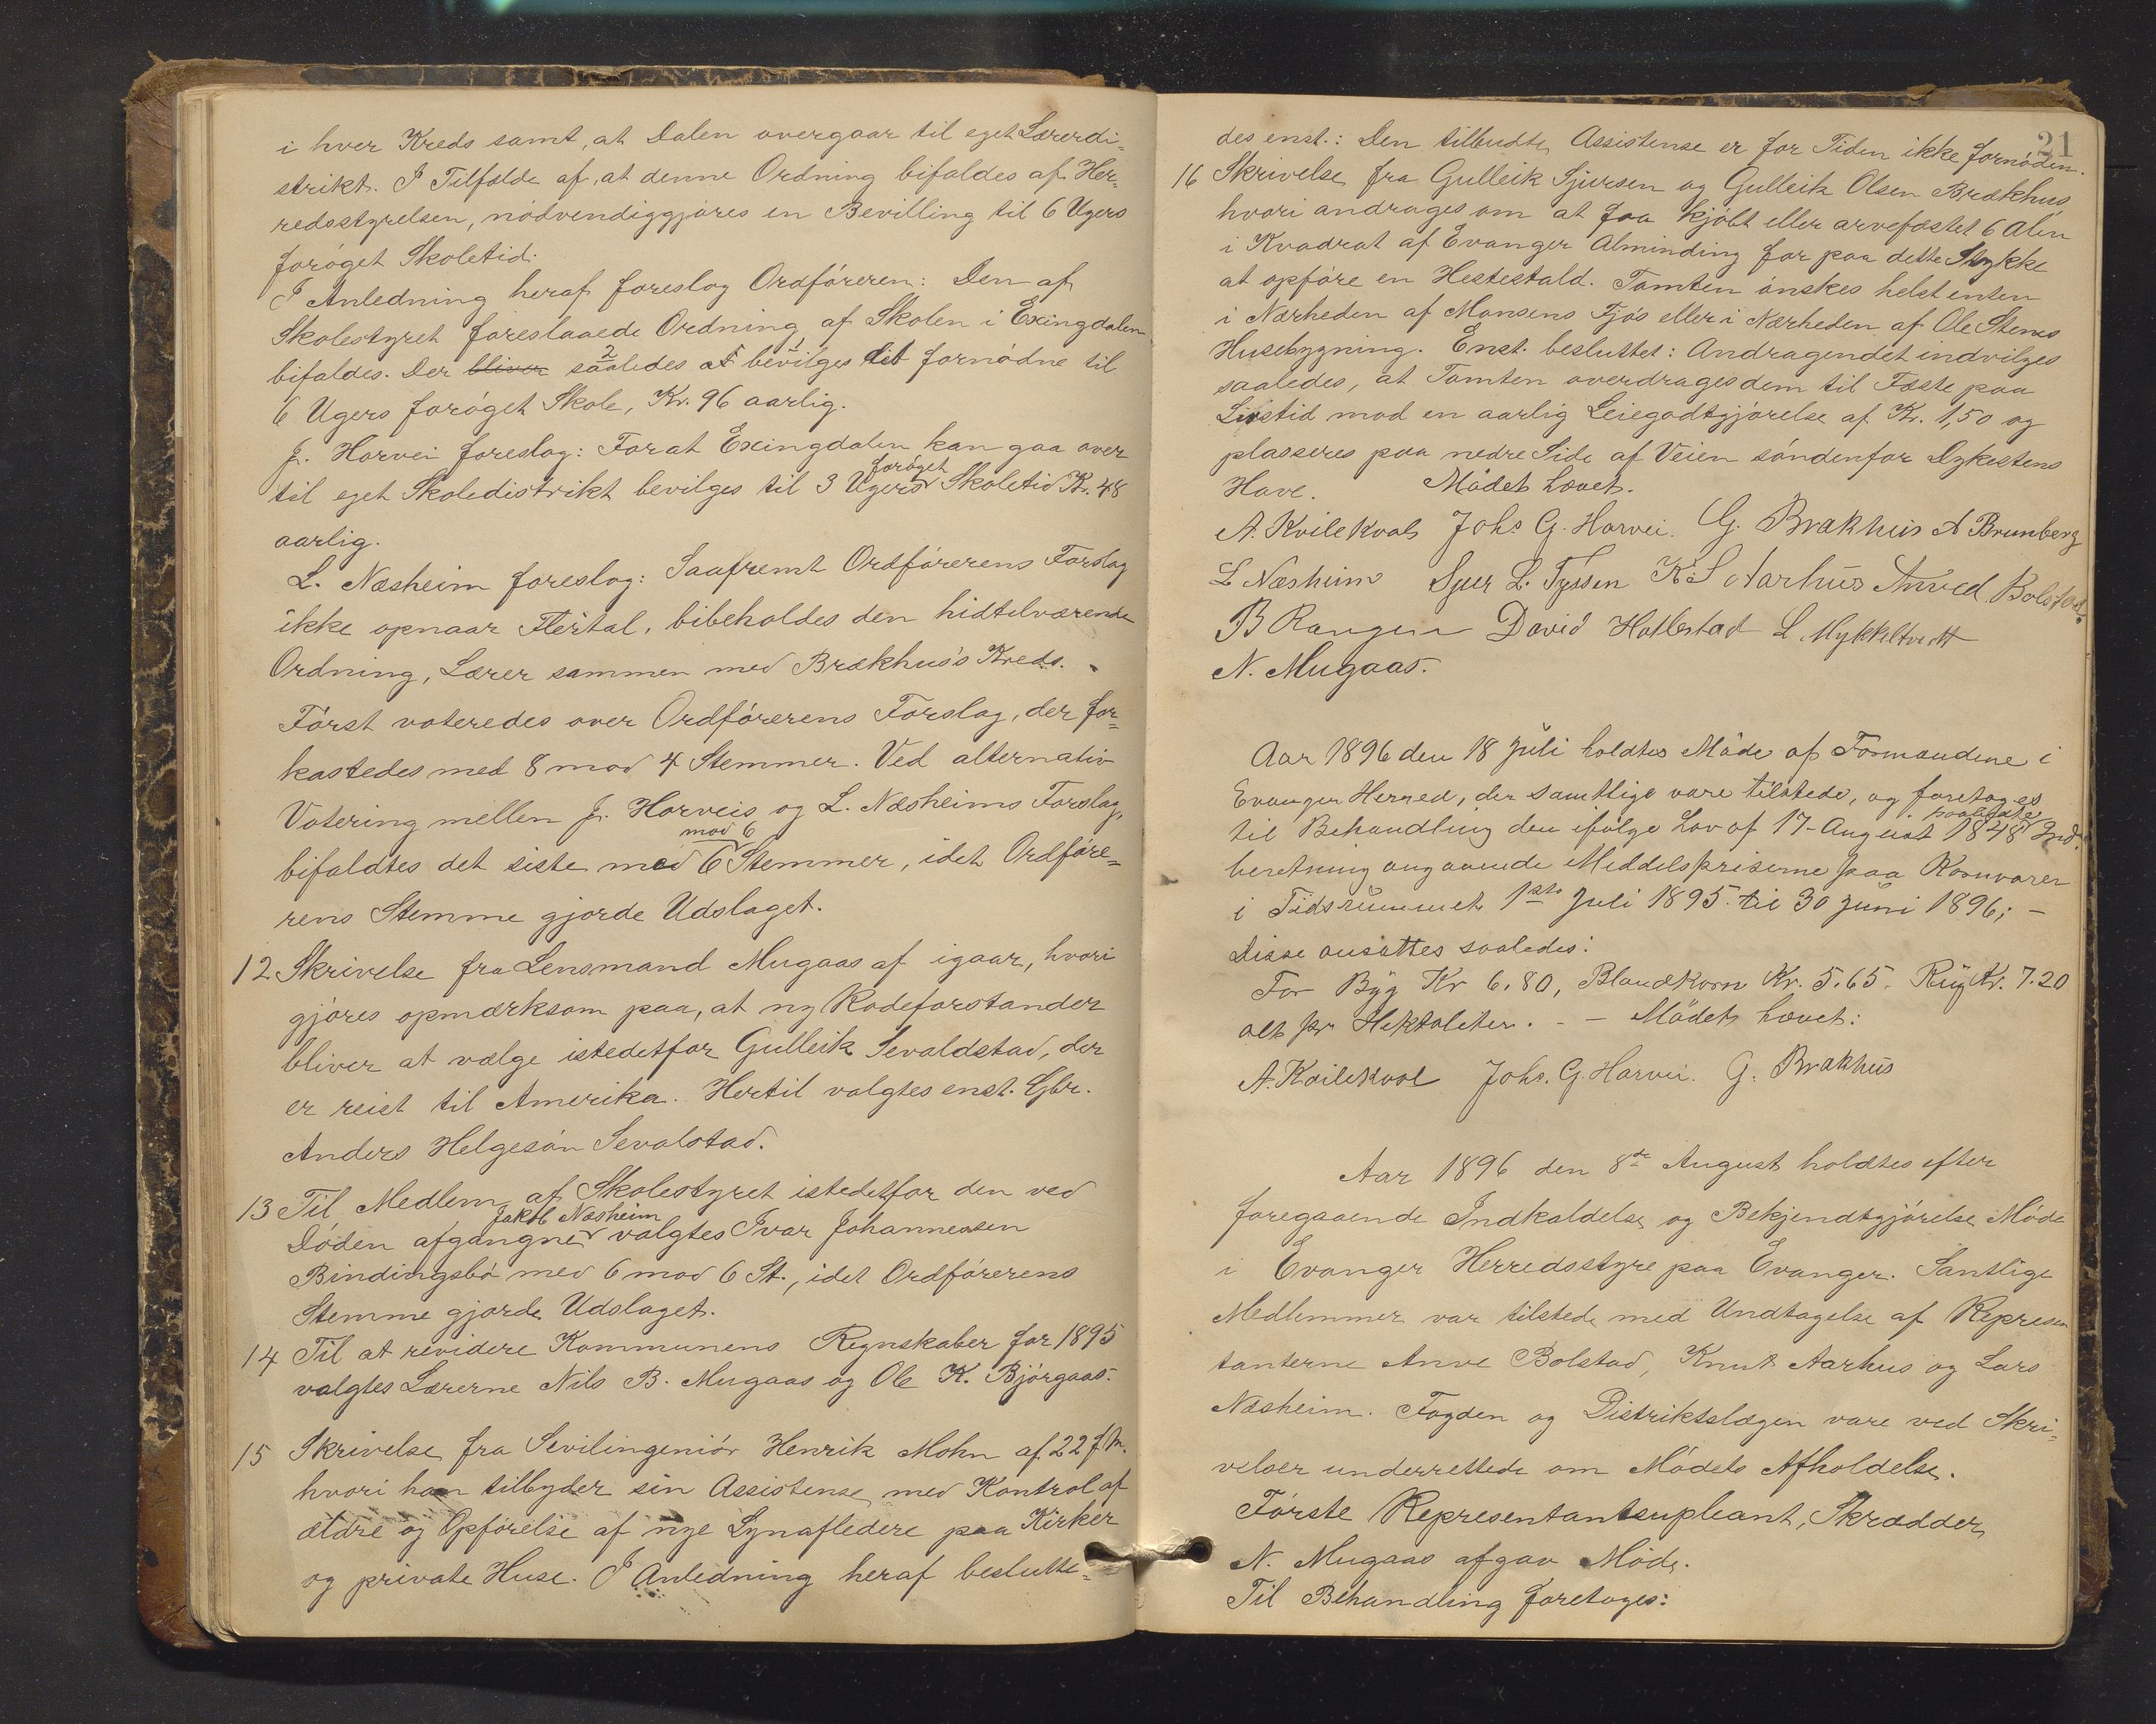 i hver Kreds samt, at Dalen overgaar til eget Lærerdi-
strikt. I Tilfælde af, at denne Ordning bifaldes af Her-
redsstyrelsen, nödvendiggjöres en Bevilling til 6 Ugers
foröget Skoletid.
I Anledning heraf foreslog Ordföreren: Den af
Skolestyret foreslaaede Ordning af Skolen i Exingdalen
bifaldes. Der bliver saaledes at bevilges det fornödne til
6 Ugers foröget Skole, Kr. 96 aarlig.
J. Horvei foreslog: For at Exingdalen kan gaa over
til eget Skoledistrikt bevilges til 3 Ugers foröget Skoletid Kr. 48
aarlig.
L. Næsheim foreslog: Saafremt Ordförerens Forslag
ikke opnaar Flertal, bibeholdes den hidtilværende
Ordning, Lærer sammen med Brækhus's Kreds.
Först voteredes over Ordförerens Forslag, der for-
kastedes med 8 mod 4 Stemmer. Ved alternativ
Votering mellem J. Horveis og L. Næsheims Forslag,
bifaldtes det siste med 6 mod 6 Stemmer, idet Ordföre-
rens Stemme gjorde Udslaget.
12 Skrivelse fra Lensmand Mugaas af igaar, hvori
gjöres opmærksom paa, at ny Rodeforstander
bliver at vælge istedetfor Gulleik Sevaldstad, der
er reist til Amerika. Hertil valgtes enst. Gbr.
Anders Helgesön Sevalstad.
13 Til Medlem af Skolestyret istedetfor den ved
Döden afgangne Jakob Næsheim valgtes Ivar Johannessen
Bindingsbö med 6 mod 6 St., idet Ordförerens
Stemme gjorde Udslaget.
14 Til at revidere Kommunens Regnskaber for 1895
valgtes Lærerne Nils B. Mugaas og Ole K. Bjørgaas.
15 Skrivelse fra Sevilingeniör Henrik Mohn af 22 f. M.
hvori han tilbyder sin Assistense med Kontrol af
ældre og Opförelse af nye Lynafledere paa Kirker
og private Huse. I Anledning heraf beslutte-
21
des enst.: Den tilbudte Assistense er for Tiden ikke fornöden.
16 Skrivelse fra Gulleik Sjursen og Gulleik Olsen Brækhus
hvori andrages om at faa kjöbt eller arvefæstet 6 Alen
i Kvadrat af Evanger Alminding for paa dette Stykke
at opföre en Hestestald. Tomten önskes helst enten
i Nærheden af Monsens Fjös eller i Nærheden af Ole Stenes
Husebygning. Enst. besluttet: Andragendet indvilges
saaledes, at Tomten overdrages dem til Fæste paa
Livstid mod en aarlig Leiegodtgjörelse af Kr. 1,50 og
plasseres paa nedre Side af Veien söndenfor Dykestens
Have. Mödet hævet.
A. Kvilekval Johs G. Horvei. G. Brakhus A Brunberg
L Næsheim Sjur L. Tyssen K. S Aarhus Anved Bolstad.
B Rangen David Hollestad L Mykkeltvedt
N. Mugaas.
Aar 1896 den 18 Juli holdtes Möde af Formændene i
Evanger Herred, der samtlige vare tilstede, og foretoges
til Behandling den ifölge Lov af 17- August 1848 paabudte Ind-
beretning angaaende Middelspriserne paa Kornvarer
i Tidsrummet 1ste Juli 1895 til 30 Juni 1896; –
Disse ansattes saaledes:
For Byg Kr 6.80, Blandkorn Kr. 5.65. Rug Kr. 7.20
alt pr Hektoliter. - – Mödet hævet:
A. Kvilekval Johs. G. Horvei. G. Brakhus
Aar 1896 den 8de August holdtes efter
foregaaende Indkaldelse og Bekjendtgjörelse Möde
i Evanger Herredsstyre paa Evanger. Samtlige
Medlemmer var tilstede med Undtagelse af Represen
tanterne Anve Bolstad, Knut Aarhus og Lars
Næsheim. Fogden og Distriktslægen vare ved Skri-
velser underrettede om Mödets Afholdelse.
Förste Representantsupleant, Skrædder
N. Mugaas afgav Möde.
Til Behandling foretoges: